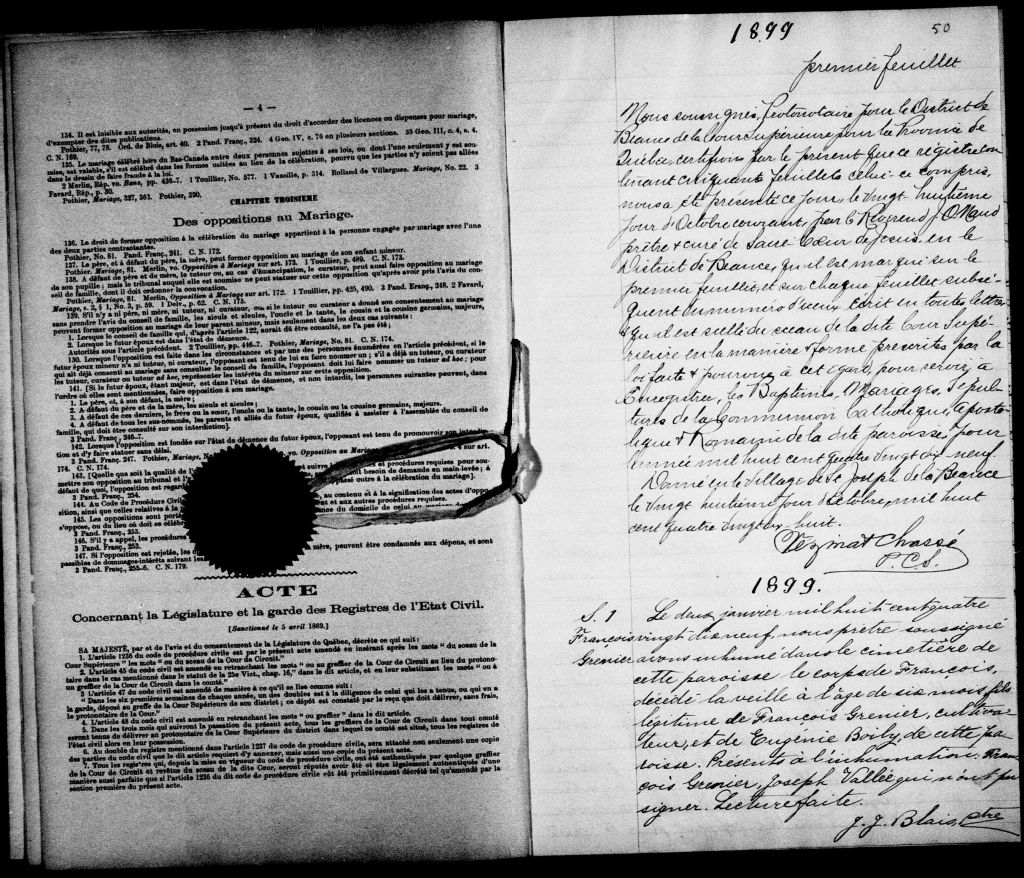 — 4 —
134. Il est loisible aux autorités, en possession jusqu'à présent du droit d'accorder des licences ou dispenses pour mariage,
d'exempter des dites publications.
Pothier, 77, 78. Ord. de Blois, art. 40. 2 Pand. Franç., 324. 4 Geo. IV, c. 76 en plusieurs sections. 35 Geo. III, c. 4, s. 4.
C. N. 169.
135. Le mariage célébré hors du Bas-Canada entre deux personnes sujettes à ses lois, ou dont l'une seulement y est sou-
mise, est valable, s'il est célébré dans les formes usitées au lieu de la célébration, pourvu que les parties n'y soient pas allées
dans le dessin de faire fraude à la loi.
2 Merlin, Rép. vo. Bans, pp. 436-7. 1 Touillier, No. 577. 1 Vazeille, p. 314. Rolland de Villargues. Mariage, No. 22. 3
Favard, Rép., p. 30.
Pothier, Mariage, 327, 361. Pothier, 390.
CHAPITRE TROISIEME
Des oppositions au Mariage.
136. Le droit de former opposition à la célébration du mariage appartient à la personne engagée par mariage avec l'une
des deux parties contractantes.
Pothier, No. 81. Pand. Franç., 241. C. N. 172.
137. Le père, et à défaut du père, la mère, peut former opposition au mariage de son enfant mineur.
Pothier, Mariage, 81. Merlin, vo. Opposition à Mariage sur art. 173. 1 Touillier, p. 489. C. N. 173.
138. A défaut de père et de mère, le tuteur ou, au cas d'émancipation, le curateur, peut aussi faire opposition au mariage
de son pupille ; mais le tribunal auquel elle est soumise ne peut statuer sur cette opposition qu'après avoir pris l'avis du con-
seil de famille, dont il doit ordonner la convocation.
Pothier, Mariage, 81. Merlin, Opposition à Mariage sur art. 172. 1 Touillier, pp. 425, 490. 3 Pand. Franç., 248. 2 Favard,
Mariage, s. 2, § 1, No. 3, p. 59. 1 Delv., p. 62. C. N. 175.
139. S'il n'y a ni père, ni mère, ni tuteur, ni curateur, ou, si le tuteur ou curateur a donné son consentement au mariage
sans prendre l'avis du conseil de famille, les aïeuls et aïeules, l'oncle et la tante, le cousin et la cousine germains, majeurs,
peuvent former opposition au mariage de leur parent mineur, mais seulement dans les deux cas suivants :
1. Lorsque le conseil de famille qui, d'après l'article 122, aurait dû être consulté, ne l'a pas été ;
2. Lorsque le futur époux est dans l'état de démence.
Autorités sous l'article précédent. 2 Touillier, pp. 446-7. Pothier, Mariage, No. 81. C. N. 174.
Lorsque l'opposition est faite dans les circonstances et par une des personnes énumérées en l'article précédent, si le
futur époux mineur n'a ni tuteur, ni curateur, l'opposant est tenu de lui en faire nommer un ; s'il a déjà un tuteur, ou curateur
qui ait déjà consenti au mariage sans consulter le conseil de famille, l'opposant doit lui faire nommer un tuteur ad hoc ; pour
les tuteur, curateur ou tuteur ad hoc, représenter les intérêts du mineur sur cette opposition.
141. [Si le futur époux, étant majeur, est dans l'état de démence, et non interdit, les personnes suivantes peuvent, dans
l'ordre où elles sont mentionnées, faire opposition à son mariage.
1. Le père, et, à son défaut, la mère ;
2. A défaut du père et de la mère, les aïeuls et aïeules ;
3. A défaut de ces derniers, le frère ou la sœur, l'oncle ou la tante, le cousin ou la cousine germains, majeurs.
4. A défaut de tous les sus-nommés, les parents et alliés du futur époux, qualifiés à assister à l'assemblée du conseil de
famille, qui doit être consulté sur son interdiction].
3 Pand. Franç., 246-7.
142. Lorsque l'opposition est fondée sur l'état de démence du futur époux, l'opposant est tenu de promouvoir son interdic-
tion et d'y faire statuer sans délai.
3 Pand. Franç. 247. Pothier, Mariage, vo. Opposition au Mariage sur art.
174. C. N. 174.
143. [Quelle que soit la qualité de l' suivre et procédures requises pour sou-
mettre son opposition au tribunal et l' besoin de demande en main-levée ; à
défaut de quoi, l'opposition est regardé passé outre à la célébration du mariage].
3 Pand. Franç., 254.
144. Au Code de Procédure Civile au contenu et à la signification des actes d'oppo-
sition, ainsi que celles relatives à la et aux autres procédures requises.
145. Les oppositions sont portées du domicile de celui au mariage
s'oppose, ou du lieu où doit se célébrer
3 Pand. Franç., 253.
146. S'il y a appel, les procédures
3 Pand. Franç., 253.
147. Si l'opposition est rejetée, les mère, peuvent être condamnés aux dépens, et sont
passibles de dommages-intérêts suivant les
3 Pand. Franç., 255-6. C. N. 179.
ACTE
Concernant la Législature et la garde des Registres de l'Etat Civil.
[Sanctionné le 5 avril 1869.]
SA MAJESTÉ, par et de l'avis et du consentement de la Législature de Québec, décrète ce qui suit :
1. L'article 1236 du code de procédure civile est par le présent acte amendé en insérant après les mots " du sceau de la
Cour Supérieure " les mots " ou du sceau de la Cour de Circuit."
2. L'article 45 du code civil est amendé en retranchant les mots " ou au greffier de la Cour de Circuit au lieu du protono-
taire dans le cas mentionné dans le statut de la 25e Vict., chap. 16," dans le dit article, et en leur substituant les mots " ou à
un greffier de la Cour de Circuit dans le comté.
3. L'article 47 du code civil est amendé de manière à ce qu'il se lise comme suit :
" Dans les six premières semaines de chaque année, un des doubles est à la diligence de celui qui les a tenus, ou qui en a
la garde, déposé au greffe de la Cour Supérieure de son district ; ce dépôt est constaté par le reçu que doit délivrer, sans frais,
le protonotaire de la Cour."
4. L'article 48 du code civil est amendé en retranchant les mots " ou greffier " dans le dit article.
5. Dans les trois mois qui suivront la passation du présent acte, tous les greffiers de la Cour de Circuit dans tout comté
seront tenus de délivrer au protonotaire de la Cour Supérieure du district dans lequel ce comté est situé, tous les registres de
l'état civil alors en leur possession.
6. Au double du registre mentionné dans l'article 1237 du code de procédure civile, sera attaché non seulement une copie
des parties du code civil que le dit article requiert d'y annexer, mais aussi une copie du présent acte.
7. Tous les registres qui, depuis la mise en vigueur du code de procédure civile, ont été authentiqués par quelque greffier
de la Cour de Circuit et revêtus du sceau de la dite Cour, seront réputés avoir été et être légalement authentiqués d'une
manière aussi parfaite que si l'article 1236 du dit code de procédure civile eût été primitivement décrété tel qu'amendé par la
section première du présent acte.
1899
50
premier feuillet
Nous soussigné, Protonotaire pour le District de
Beauce de la Cour Supérieure pour la Province de
Québec, certifions par le présent que ce registre con
tenant cinquante feuillets celui-ci compris,
nous a été présenté ce jour le vingt huitième
jour d'Octobre courant, par le Révérend J. O. Naud
prêtre & curé de Sacré Cœur de Jésus, en le
District de Beauce, qu'il est marqué sur le
premier feuillet, et sur chaque feuillet subsé-
quent du numéro d'iceux écrit en toutes lettres
& qu'il est scellé du sceau de la dite Cour Supé-
rieure en la manière & forme prescrites par la
loi faite & pourvue à cet égard, pour servir à
Enregistrer, les Baptêmes, Mariages, Sépul-
tures de la Communion Catholique, Aposto-
lique & Romaine de la dite paroisse, pour
l'année mil huit cent quatre vingt dix neuf.
Donné en le village de St Joseph de la Beauce
le vingt huitième jour d'Octobre, mil huit
cent quatre vingt dix-huit.
Vézina & Chassé
P.C.S.
1899.
S. 1
François
Grenier
Le deux janvier mil huit cent quatre
vingt dix neuf, nous prêtre soussigné
avons inhumé dans le cimetière de
cette paroisse le corps de François,
décédé la veille à l'âge de six mois, fils
légitime de François Grenier, cultiva-
teur, et de Eugénie Boily, de cette pa-
roisse. Présents à l'inhumation: Fran-
çois Grenier, Joseph Vallée qui n'ont pu
signer. Lecture faite.
J. J. Blais, Ptre